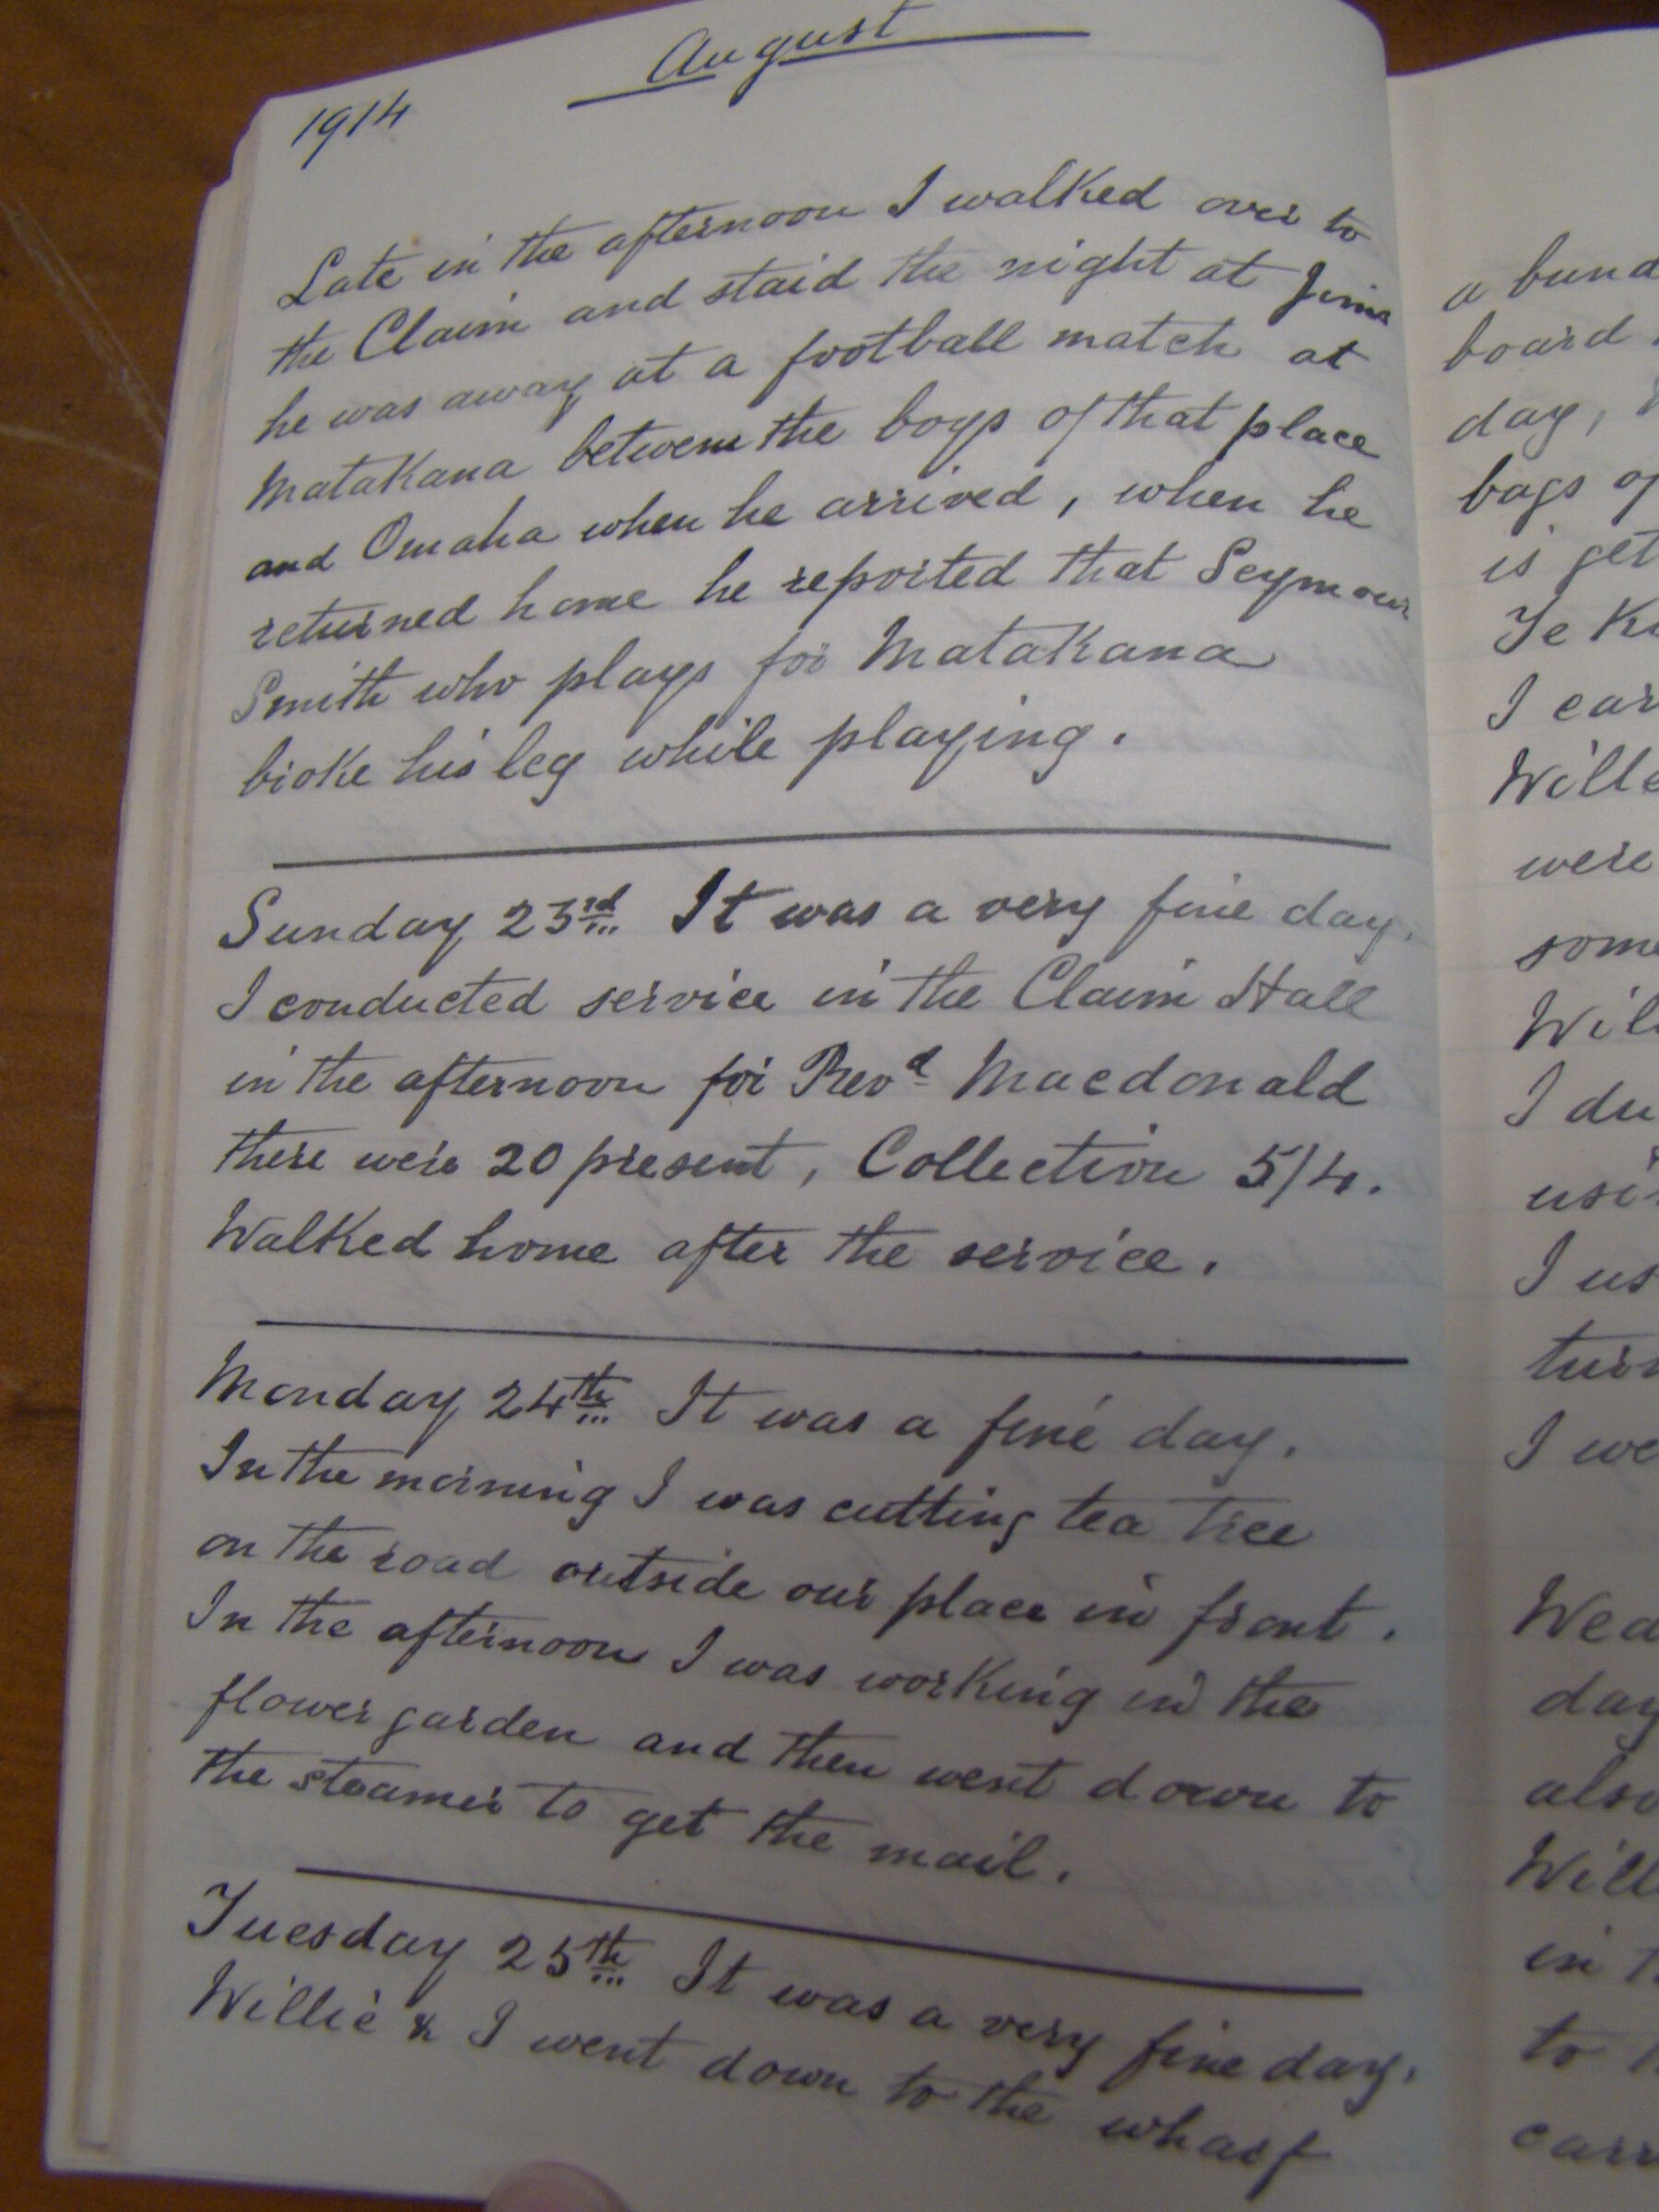 August
1914
Late in the afternoon I walked over to
the Claim and staid the night at Jims
he was away at a football match at
Matakana between the boys of that place
and Omaha when he arrived, when he
returned home he reported that Seymour
Smith who plays for Matakana
broke his leg while playing.
Sunday 23rd It was a very fine day.
I conducted service in the Claim Hall
in the afternoon for Revd Macdonald
there were 20 present, Collection 5/4.
Walked home after the service.
Monday 24th It was a fine day.
In the morning I was cutting tea tree
on the road outside our place in front.
In the afternoon I was working in the
flower garden and then went down to
the steamer to get the mail.
Tuesday 25th It was a very fine day.
Willie & I went down to the wharf
a bund
board
day,
bags of
is get
Te K
I car
Wille
were
some
Wil
I du
usi
I us
turn
I we
Wed
day
also
Will
in
to
carr